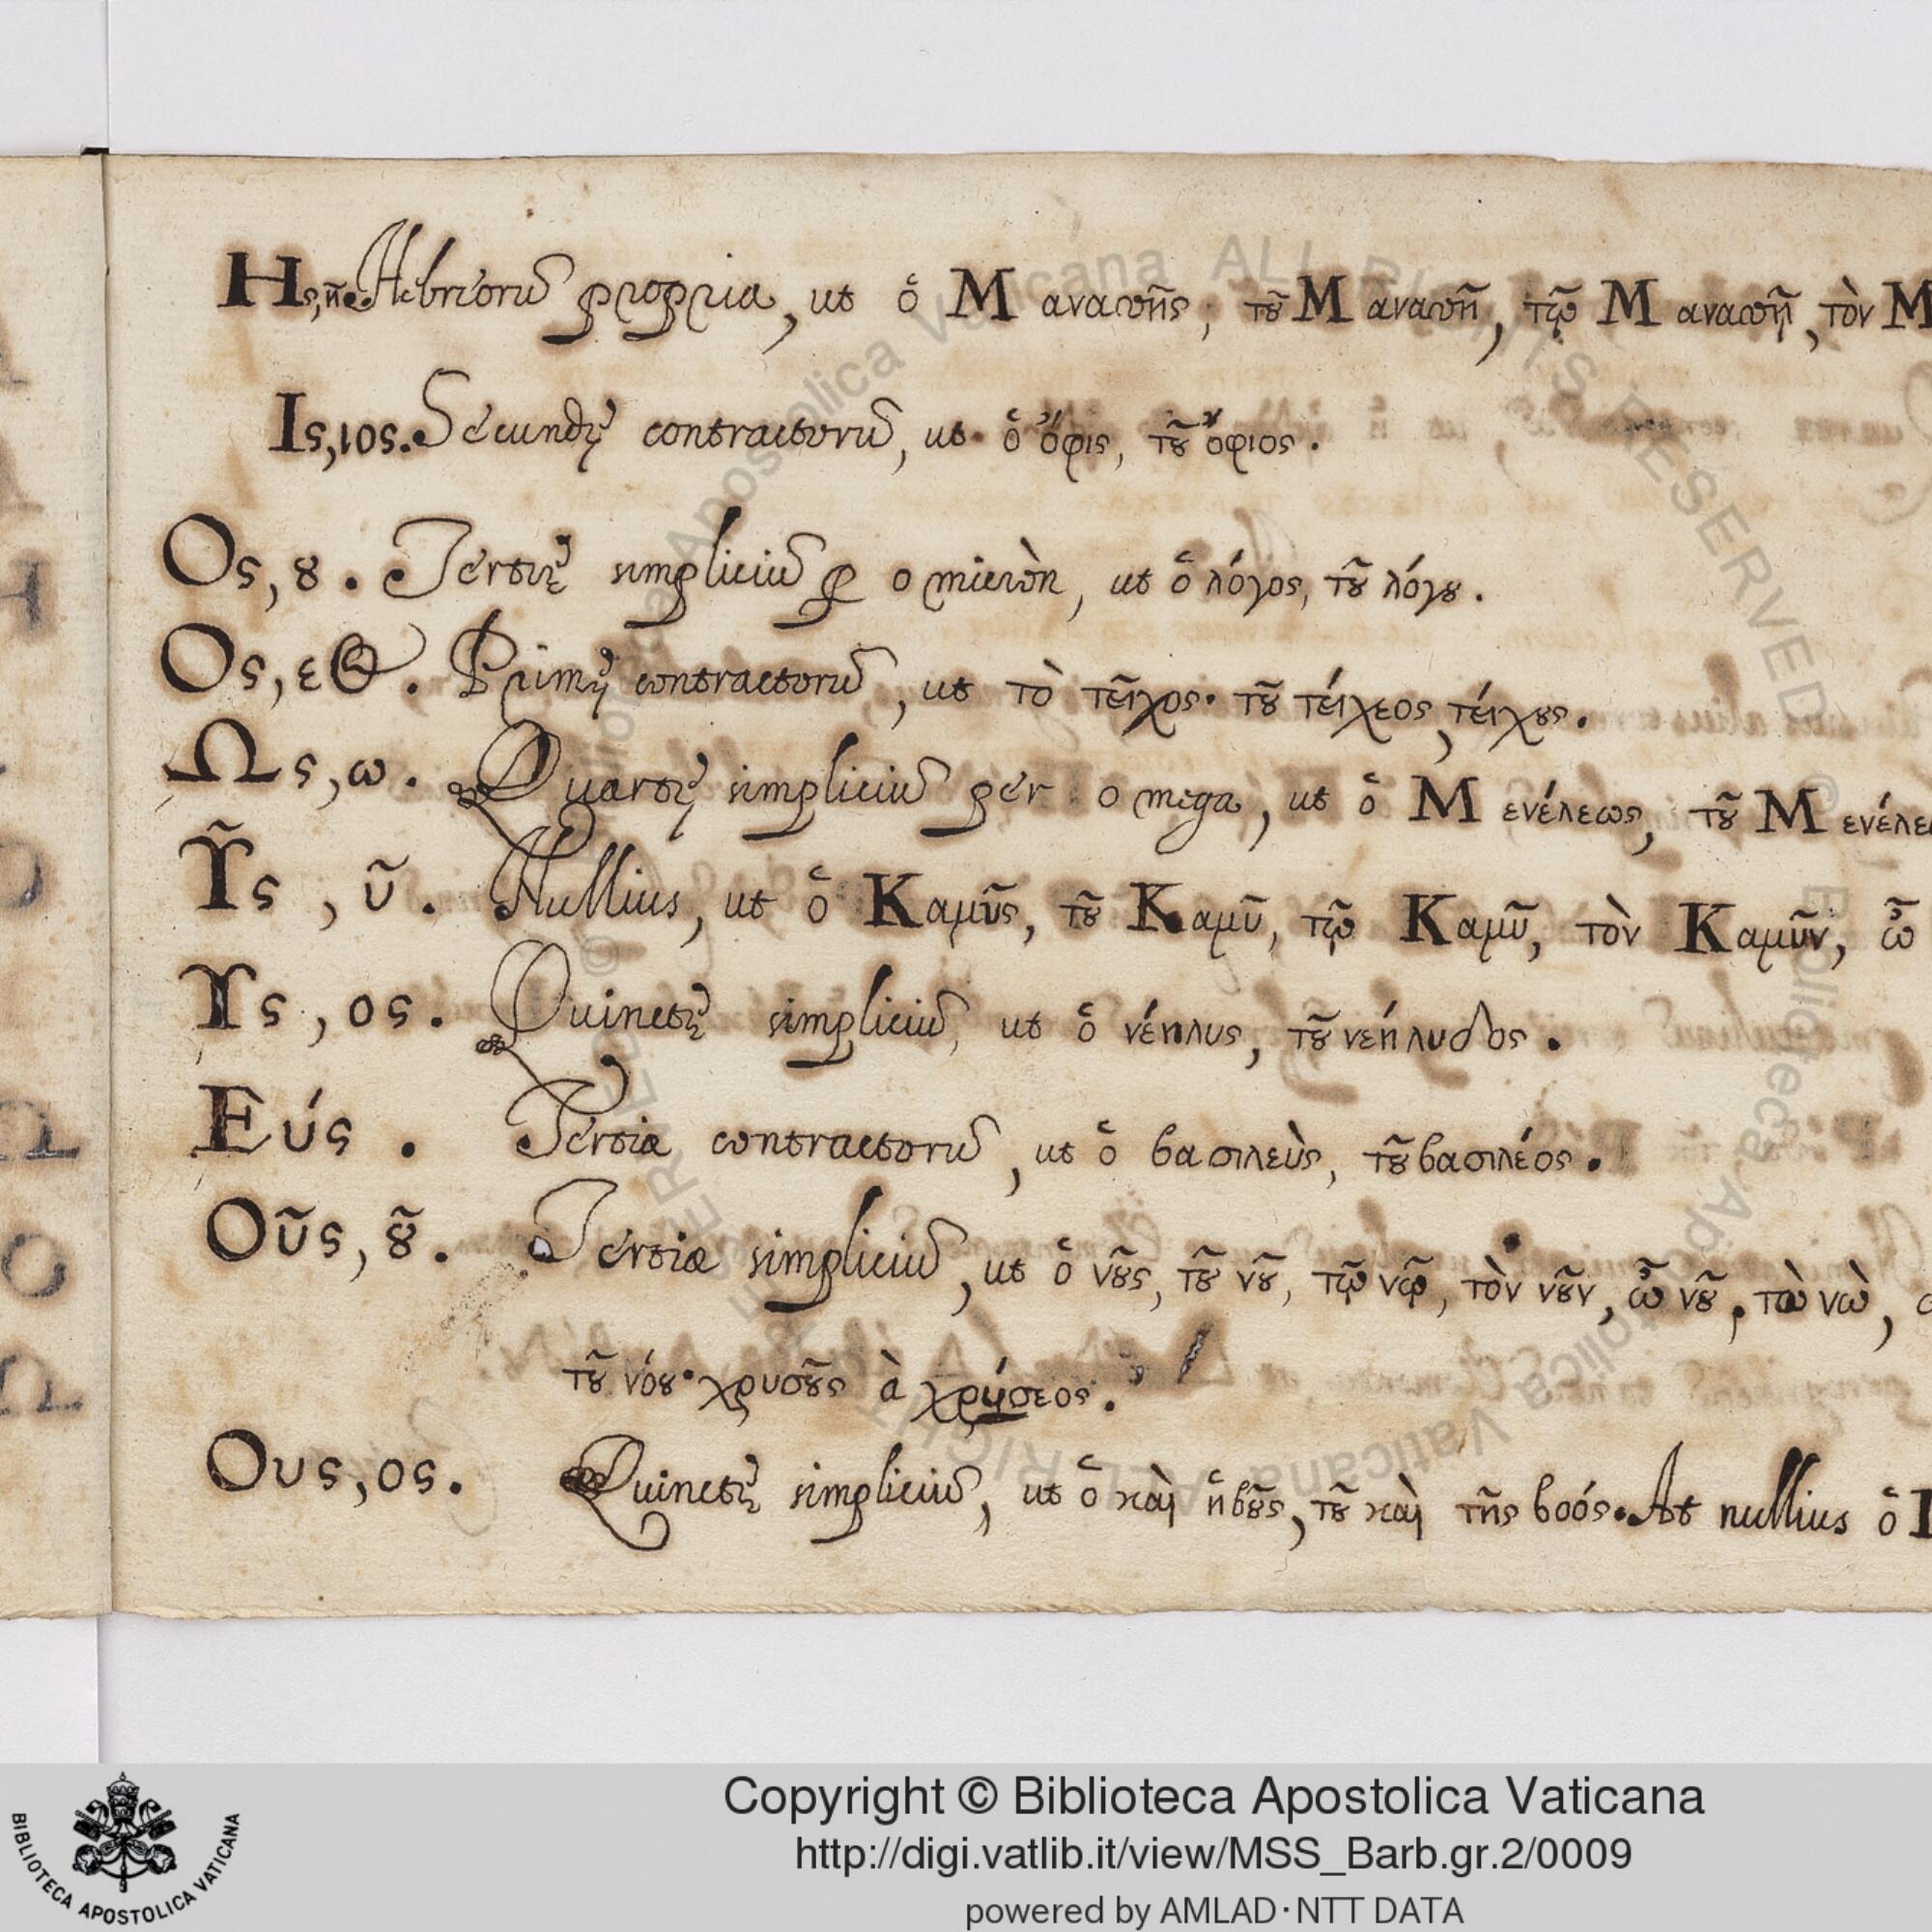 Ης, ῆ. Hebreorũ propria, ut ὁ Μανασῆς, τȣ͂ Μανασῆ, τῷ Μανασῇ, τὸν Μ
Ις, ιος. Secundę contractorũ, ut ὁ ὄφις, τȣ͂ ὄφιος.
Ος, ȣ. Tertię simpliciũ ꝑ o micròn, ut ὁ λόγος, τȣ͂ λόγȣ.
Ος, εος. Primę contractorũ, ut τὸ τεῖχος· τȣ͂ τείχεος, τείχȣς.
Ως, ω. Quartę simpliciũ per o mega, ut ὁ Μενέλεως, τȣ͂ Μενέλε
Υ͂ς, ῦ. Nullius, ut ὁ Καμῦς, τȣ͂ Καμῦ, τῷ Καμῦ, τὸν Καμῦν, ὦ
Υς, ος. Quinctę simpliciũ, ut ὁ νέηλυς, τȣ͂ νεήλυδος.
Εύς. Tertiæ contractorũ, ut ὁ βασιλεὺς, τȣ͂ βασιλέος.
Οῦς, ȣ͂. Tertiæ simpliciũ, ut ὁ νȣ͂ς, τȣ͂ νȣ͂, τῷ νῷ, τὸν νȣ͂ν, ὦ νȣ͂, τὼ νὼ,
τȣ͂ νόȣ· χρυσȣ͂ς à χρύσεος.
Ους, ος. Quinctę simpliciũ, ut ὁ καὶ ἡ βȣ͂ς, τȣ͂ καὶ τῆς βοός. At nullius ὁ Ι
Copyright © Biblioteca Apostolica Vaticana
http://digi.vatlib.it/view/MSS_Barb.gr.2/0009
powered by AMLAD·NTT DATA
BIBLIOTECA APOSTOLICA VATICANA